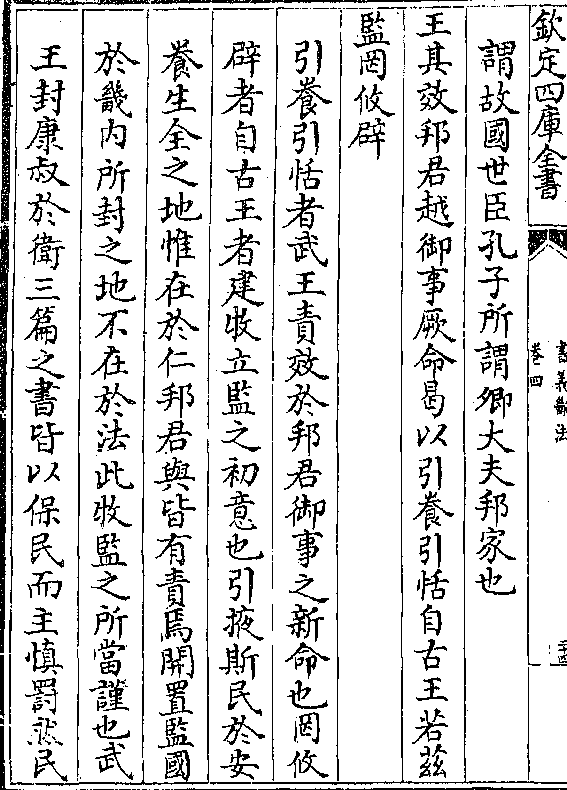 欽定四庫全書
書義斷法
卷四
謂故國世臣孔子所謂卿大夫邦家也
王其效邦君越御事厥命曷以引養引恬自古王若茲
監罔攸辟
引養引恬者武王責效於邦君御事之新命也罔攸
辟者自古王者建牧立監之初意也引掖斯民於安
養生全之地惟在於仁邦君與皆有責焉開置監國
於畿內所封之地不在於法此牧監之所當謹也武
王封康叔於衛三篇之書皆以保民而主慎罰哉民